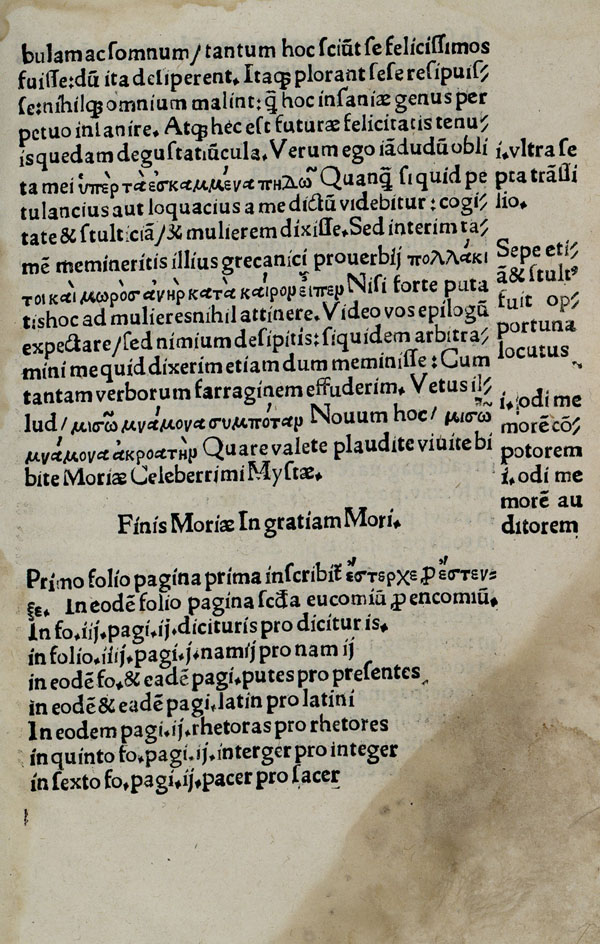 bulam ac ſomnum/ tantum hoc ſciũt ſe feliciſſimos
fuiſſe: dũ ita deſiperent. Itaqꝫ plorant ſeſe reſipuiſ⸗
ſe: nihilqꝫ omnium malint: q̃ hoc inſaniæ genus per
petuo inſanire. Atqꝫ hęc eſt futuræ felicitatis tenu⸗
is quedam deguſtatiũcula. Verum ego iãdudũ obli
ta mei ὑπὲρ τὰ ἐσκαμμένα πηδῶ Quanq̃ ſi quid pe
tulancius aut loquacius a me dictũ videbitur: cogi⸗
tate & ſtulticiã/ & mulierem dixiſſe. Sed interim ta⸗
mẽ memineritis illius grecanici prouerbij πολλάκι
τοι καὶ μωρὸς ἀνὴρ κατὰ καίρον εἶπεν Niſi forte puta
tis hoc ad mulieres nihil attinere. Video vos epilogũ
expectare/ ſed nimium deſipitis: ſiquidem arbitra⸗
mini me quid dixerim etiam dum meminiſſe: Cum
tantam verborum farraginem effuderim. Vetus il⸗
lud/ μισῶ μνάμονα συμπόταν Nouum hoc/ μισῶ
μνάμονα ἀκροατὴν Quare valete plaudite viuite bi
bite Moriæ Celeberrimi Myſtæ.
i. vltra ſe
pta trãſſi
lio.
Sepe eti⸗
ã & ſtultꝰ
fuit op⸗
portuna
locutus
i. odi me
morẽ cõ⸗
potorem
i. odi me
morẽ au
ditorem
Finis Moriæ In gratiam Mori.
Primo folio pagina prima inſcribit̃ ἔστερχε ꝓ ἔστεν⸗
ξε. In eodẽ folio pagina ſcd̃a eucomiũ ꝓ encomiũ.
In fo. iij. pagi. ij. dicituris pro dicitur is.
in folio. iiij. pagi. j. namij pro nam ij
in eodẽ fo. & eadẽ pagi. putes pro preſentes
in eodẽ & eadẽ pagi. latin pro latini
In eodem pagi. ij. rhetoras pro rhetores
in quinto fo. pagi. ij. interger pro integer
in ſexto fo. pagi. ij. pacer pro ſacer